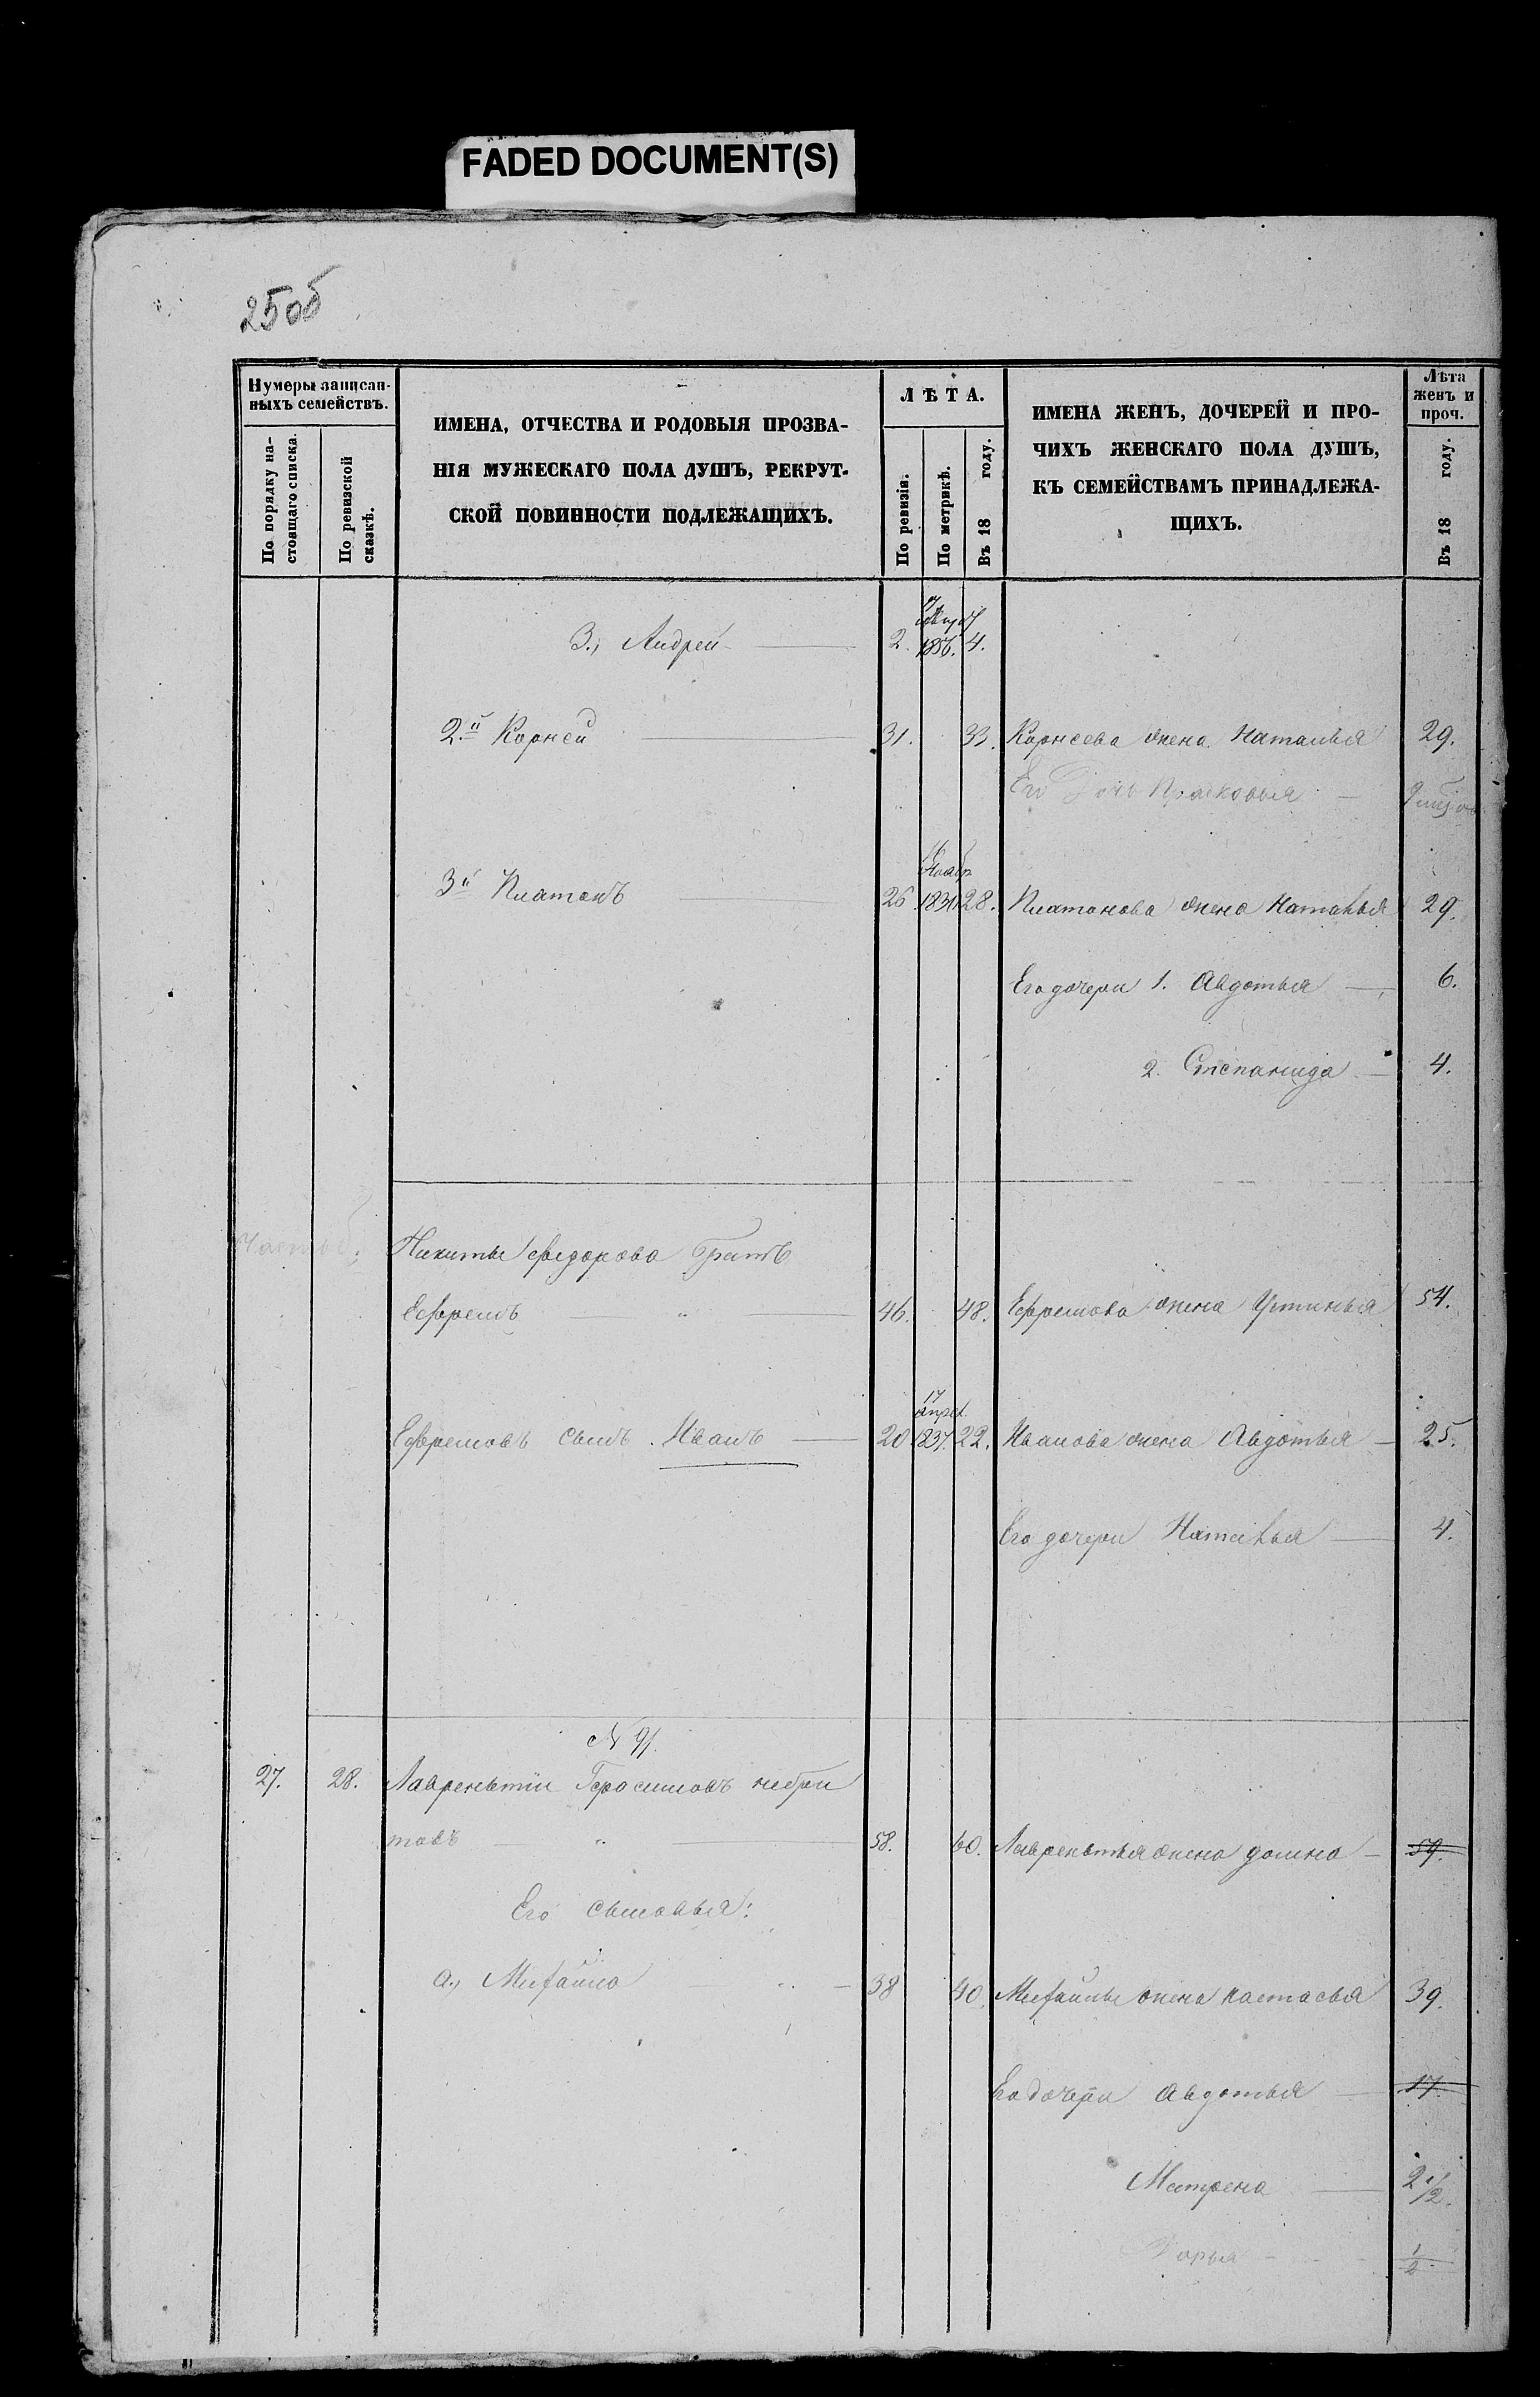 FADED DOCUMENT(S)
25об
Нумеры записан-
ныхъ семействъ.
По порядку на-
стоящаго списка.
По ревизской
сказкѣ.
ИМЕНА, ОТЧЕСТВА И РОДОВЫЯ ПРОЗВА-
НІЯ МУЖЕСКАГО ПОЛА ДУШЪ, РЕКРУТ-
СКОЙ ПОВИННОСТИ ПОДЛЕЖАЩИХЪ.
ЛѢТА.
По ревизіи.
По метрикѣ.
Въ 18 году.
ИМЕНА ЖЕНЪ, ДОЧЕРЕЙ И ПРО-
ЧИХЪ ЖЕНСКАГО ПОЛА ДУШЪ,
КЪ СЕМЕЙСТВАМЪ ПРИНАДЛЕЖА-
ЩИХЪ.
Лѣта
женъ и
проч.
Въ 18 году.
3., Андрей 2. 1856. 4.
2.й Корней 31. 33. Корнеева жена Наталья 29.
Его Дочь Прасковья
3й Платонъ 26. Нояб 28. Платонова жена Наталья 29.
Его дочери 1. Авдотья 6.
2. Степанида 4.
Никиты Федорова братъ
Ефремъ 46. 48. Ефремова жена Устинья 54.
17 апрел.
Ефремовъ сынъ Иванъ 20 1837. 22. Иванова жена Авдотья 25.
Его дочери Наталья 4.
N 91.
27. 28. Лаврентий Герасимовъ
товъ 58. 60. Лаврентья жена домна 59.
Его сыновья:
а., Михайло 38 40. Михайлы жена настасья 39.
Его дочери Авдотья 17.
Матрена 2 1/2.
Дарья 1/2.